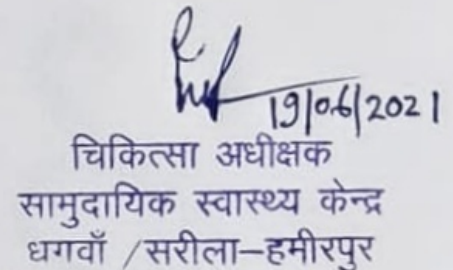 19/06/2021
चिकित्सा अधीक्षक
सामुदायिक स्वास्थ्य केन्द्र
धगवाँ /सरीला–हमीरपुर